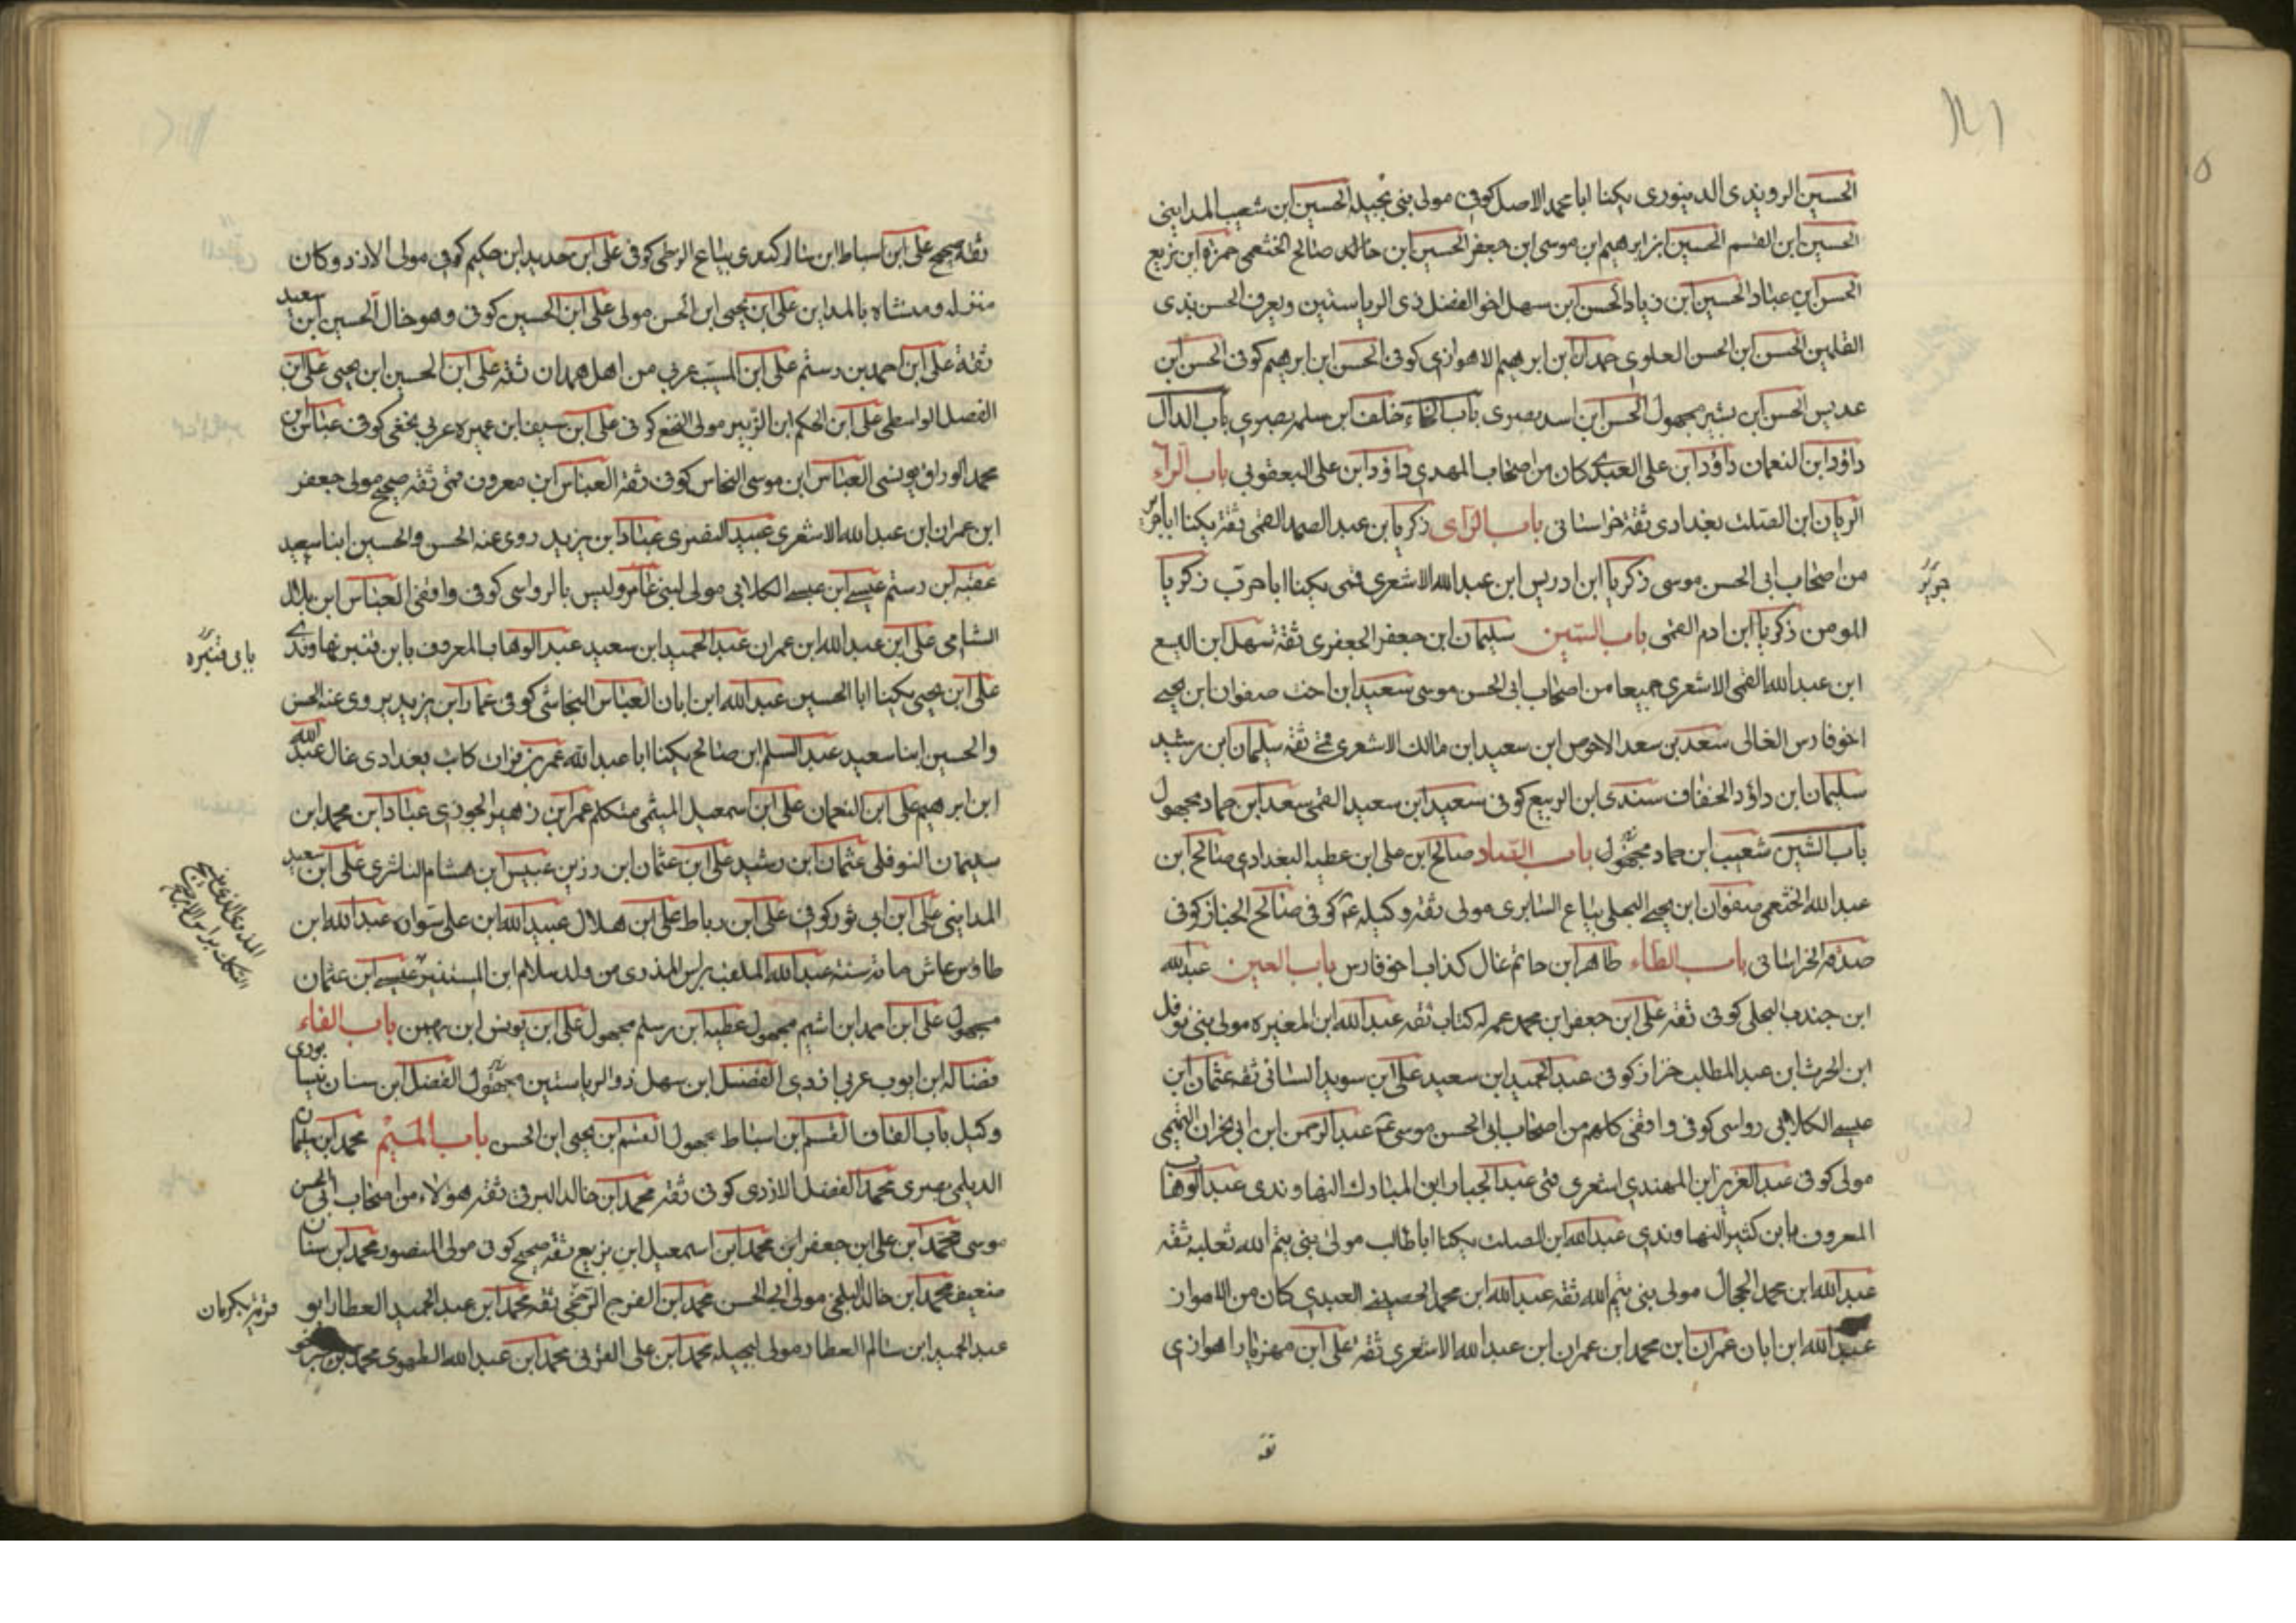 الحسين الروندى الدينورى يكنا ابا محمد الاصل كوفى مولى بنى بجيله الحسين ابن شعيب المداينى
الحسين ابن القسم الحسين ابن ابرهيم ابن موسى ابن جعفر الحسين ابن خالد صالح الخثعمى حمزه ابن بزيع
الحسن ابن عباد الحسين ابن زياد الحسن ابن سهل اخو الفضل ذى الرياستين ويعرف الحسن بذى
القلمين الحسن ابن الحسن العلوى حمدان ابن ابرهيم الاهوازى كوفى الحسن ابن ابرهيم كوفى الحسن ابن
عديس الحسن ابن بشير مجهول الحسن ابن اسد بصرى باب الخاء خلف ابن سلمه بصرى باب الدال
داؤد ابن النعمان داؤد ابن على العبدى كان من اصحاب المهدى داؤد ابن على اليعقوبى باب الراء
الريان ابن الصلت بغدادى ثقة خراسانى باب الزاى زكريا ابن عبد الصمد القمى ثقة يكنا ابا جرير
من اصحاب ابى الحسن موسى زكريا ابن ادريس ابن عبد الله الاشعرى قمى يكنا ابا جرير زكريا
جرير
المومن زكريا ابن ادم القمى باب السين سليمان ابن جعفر الجعفرى ثقة سهل ابن اليسع
ابن عبد الله القمى الاشعرى جميعا من اصحاب ابى الحسن موسى سعيد ابن اخت صفوان ابن يحيى
اخو فارس الغالى سعد بن سعد الاحوص ابن سعيد ابن مالك الاشعرى قمى ثقه سليمان ابن رشيد
سليمان ابن داؤد الخفاف سندى ابن الربيع كوفى سعيد ابن سعيد القمى سعد ابن حماد مجهول
باب الشين شعيب ابن حماد مجهول باب الصاد صالح ابن على ابن عطيه البغدادى صالح ابن
عبد الله الخثعمى صفوان ابن يحيى البجلى بياع السابرى مولى ثقه وكيله ع كوفى صالح الخباز كوفى
صدقه الخراسانى باب الطاء طاهر ابن حاتم غال كذاب اخو فارس باب العين عبد الله
ابن جندب البجلى كوفى ثقه على ابن جعفر ابن محمد عم له كتاب ثقه عبد الله ابن المغيره مولى بنى نوفل
ابن الحرث ابن عبد المطلب خزاز كوفى عبد الحميد ابن سعيد على ابن سويد السانى ثقه عثمان ابن
عيسى الكلابى رواسى كوفى واقفى كلهم من اصحاب ابى الحسن موسى ع عبد الرحمن ابن ابى نجران التميمى
مولى كوفى عبد العزيز ابن المهتدى اشعرى قمى عبد الجبار ابن المبارك النهاوندى عبد الوهاب
المعروف بابن كثير النهاوندى عبد الله ابن الصلت يكنا ابا طالب مولى بنى تيم الله ثعلبه ثقه
عبد الله ابن محمد الحجال مولى بنى تيم الله ثقه عبد الله ابن محمد الحصينى العبدى كان من الاهواز
عبد الله ابن ابان عمران ابن محمد ابن عمران ابن عبد الله الاشعرى ثقه على ابن مهزيار اهوازى
ثقه
ثقه صحيح على ابن اسباط ابن سالم كندى بياع الزطى كوفى على ابن حديد ابن حكيم كوفى مولى الازد وكان
منزله ومنشاه بالمداين على ابن يحيى ابن الحسن مولى على ابن الحسين كوفى وهو خال الحسين ابن سعيد
ثقة على ابن احمد بن رستم على ابن المسيب عربى من اهل همدان ثقه على ابن الحسين ابن يحيى على ابن
الفضل الواسطى على ابن الحكم ابن الزبير مولى النخع كوفى على ابن سيف ابن عميره عربى نخعى كوفى عباس ابن
محمد الوراق يونسى العباس ابن موسى النخاس كوفى ثقه العباس ابن معروف قمى ثقه صحيح مولى جعفر
ابن عمران ابن عبد الله الاشعرى عبيد النضرى عباد ابن يزيد روى عنه الحسن والحسين ابنا سعيد
عقبه ابن رستم عيسى ابن عيسى الكلابى مولى لبنى عامر وليس بالرواسى كوفى واقفى العباس ابن هلال
الشامى على ابن عبد الله ابن عمران عبد الحميد ابن سعيد عبد الوهاب المعروف بابن قنبر نهاوندى
على ابن يحيى يكنا ابا الحسين عبد الله ابن ابان العباس النجاشى كوفى عمار ابن يزيد يروى عنه الحسن
والحسين ابنا سعيد عبد السلم ابن صالح يكنا ابا عبد الله عمر بن فرات كاتب بغدادى غال عبد الله
ابن ابرهيم على ابن النعمان على ابن اسمعيل الميثمى متكلم عمر ابن زهير الجوزى عباد ابن محمد ابن
سليمان النوفلى عثمان ابن رشيد على ابن عثمان ابن رزين عبيس ابن هشام الناشرى على ابن سعيد
المداينى على ابن ابى ثور كوفى على ابن رباط على ابن هلال عبيد الله ابن على سوان عبد الله ابن
طاوس عاش مائة سنة عبد الله الملقب براس المذرى من ولد سلام ابن المستنير عيسى ابن عثمان
مجهول على ابن احمد ابن اشيم مجهول عطيه ابن رسلم مجهول على ابن يونس ابن بهمن باب الفاء
فضاله ابن ايوب عربى ازدى الفضل ابن سهل ذو الرياستين مجهول الفضل ابن سنان نيسابورى
وكيل باب القاف القسم ابن اسباط مجهول القسم ابن يحيى ابن الحسن باب الميم محمد ابن سليمان
الديلمى بصرى محمد الفضل الازدى كوفى ثقه محمد ابن خالد البرقى ثقه هؤلاء من اصحاب ابى الحسن
موسى محمد ابن على ابن جعفر ابن محمد ابن اسمعيل ابن بزيع ثقة صحيح كوفى مولى المنصور محمد ابن سنان
ضعيف محمد ابن خالد البلخى مولى ابى الحسن محمد ابن الفرج الرخجى ثقه محمد ابن عبد الحميد العطار ابو
عبد الحميد ابن سالم العطار مولى لبجيله محمد ابن على القرنى محمد ابن عبد الله الطهوى محمد بن